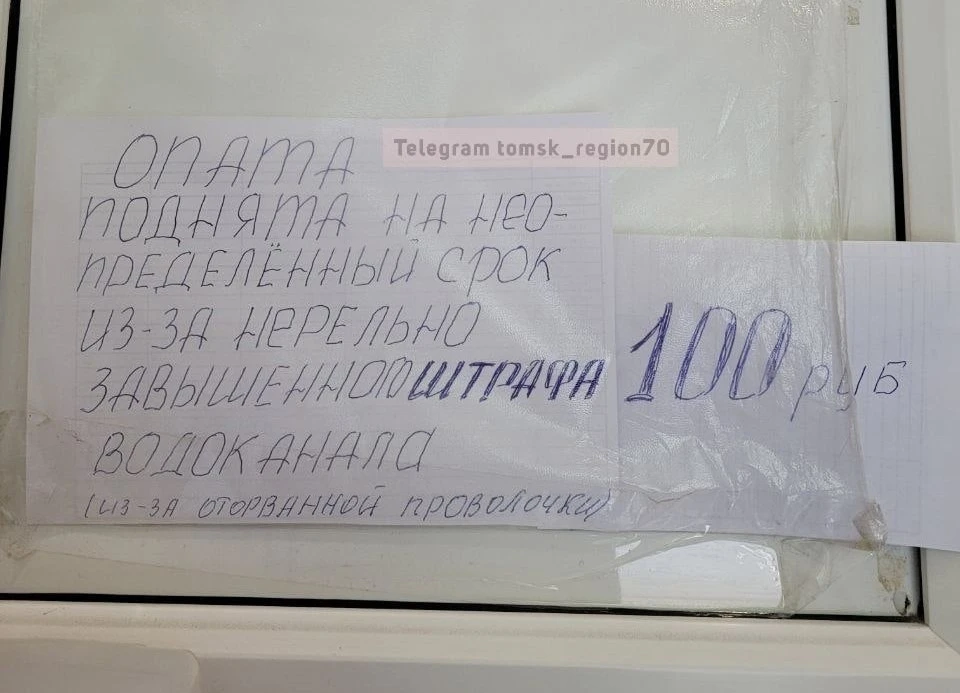 ОПАТА
Telegram tomsk_region70
ПОДНЯТА НА НЕО-
ПРЕДЕЛЁННЫЙ СРОК
ИЗ-ЗА НЕРЕЛЬНО
ЗАВЫШЕННОГО ШТРАФА
100 руб
ВОДОКАНАЛА
(ИЗ-ЗА ОТОРВАННОЙ ПРОВОЛОЧКИ)